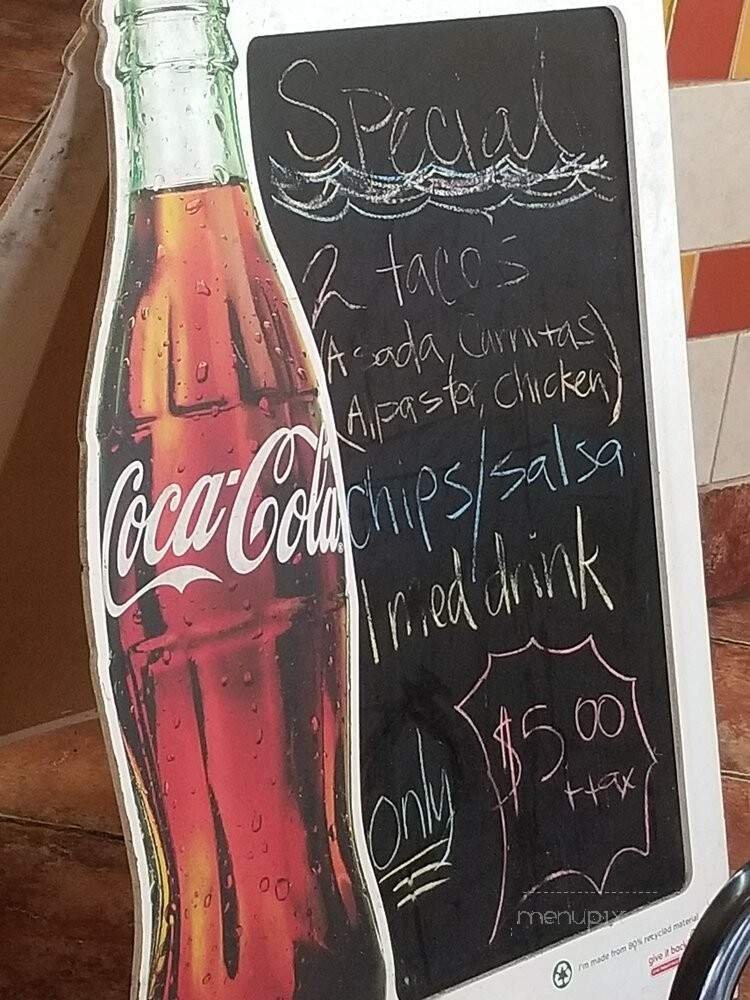 Special
2 tacos
(Asada, Carnitas)
(Alpastor, chicken)
Coca-Cola
chips/salsa
1 med drink
$5.00
+tax
only
menupix
I'm made from 80% recycled material
give it back